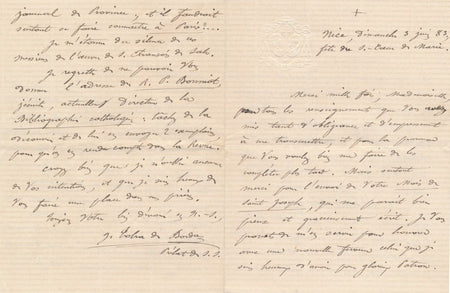 +
Nice, Dimanche 3 juin 83,
fête du S. Cœur de Marie.
Merci mille fois, Mademoiselle
pour tous les renseignements que vous avez
mis tant d'obligeance et d'empressement
à me transmettre, et pour la promesse
que vous voulez bien me faire de les
compléter plus tard. Mais surtout
merci pour l'envoi de votre Mois de
Saint Joseph, qui me paraît bien
pieux et gracieusement écrit. Je
de m'en servir pour honorer
avec une nouvelle ferveur celui que je
suis heureux d'avoir pour glorieux Patron.
journal de Province, et il faudrait
surtout en faire connaître à Paris?...
Je m'étonne du silence de
de l'œuvre de S. François de Sales.
Je regrette de ne pouvoir vous
donner l'adresse du R. P.
jésuite, actuellement Directeur de la
Bibliographie catholique: tachez de la
découvrir et de lui en envoyer 2 exemplaires
pour qu'il en rende compte dans la Revue.
Croyez bien que je n'oublie aucune
de vos intentions, et que je suis heureux de
vous faire une place dans mes prières.
Votre bien dévoué en N.-S.,
J.
de S. S.